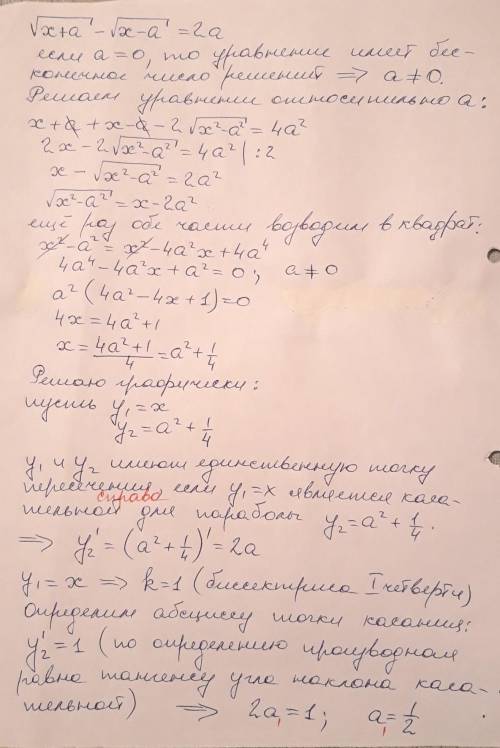 √x+a - √x-a = 2a
если a=0, то уравнение имеет бес-
конечное число решений ⟹ a≠0.
Решаем уравнение относительно a:
x+a+x-a-2√x²-a² = 4a²
2x-2√x²-a² = 4a² | :2
x-√x²-a² = 2a²
√x²-a² = x-2a²
ещё раз обе части возводим в квадрат:
x²-a² = x²-4a²x+4a⁴
4a⁴-4a²x+a²=0; a≠0
a²(4a²-4x+1)=0
4x=4a²+1
x=(4a²+1)/4=a²+1/4
Решаю графически:
пусть y₁=x
y₂=a²+1/4
y₁ и y₂ имеют единственную точку
пересечения справа если y₁=x является каса-
тельной для параболы y₂=a²+1/4.
⟹ y₂'=(a²+1/4)'=2a
y₁=x ⟹ k=1 (биссектриса I четверти)
Определим абсциссу точки касания:
y₂'=1 (по определению производная
равна тангенсу угла наклона каса-
тельной) ⟹ 2a₁=1; a₁=1/2.